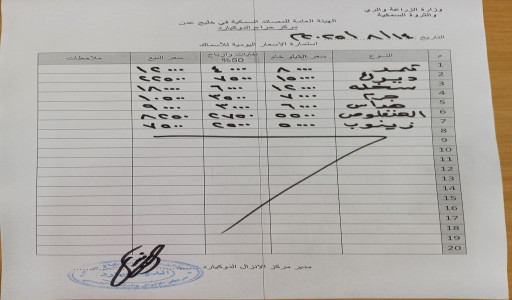 وزارة الزراعة والري
والثروة السمكية
الهيئة العامة للمصائد السمكية في خليج عدن
مركز حراج الدوكيارد
التاريخ ٢٠٢٥/٨/١٤
استمارة الاسعار اليومية للأسماك
م النوع سعر الكيلو خام نفايات وارباح 50% سعر البيع ملاحظات
1 ثمد ٨٠٠٠ ٤٠٠٠ ١٢٠٠٠
2 ديرك ١٥٠٠٠ ٧٥٠٠ ٢٢٥٠٠
3 سخله ١٢٠٠٠ ٦٠٠٠ ١٨٠٠٠
4 جحم ٧٠٠٠ ٣٥٠٠ ١٠٥٠٠
5 ٦٠٠٠ ٣٠٠٠ ٩٠٠٠
6 ٥٥٠٠ ٢٧٥٠ ٨٢٥٠
7 زينوب ٥٠٠٠ ٢٥٠٠ ٧٥٠٠
8
9
10
11
12
13
14
15
16
17
18
19
20
مدير مركز الانزال الدوكيارد